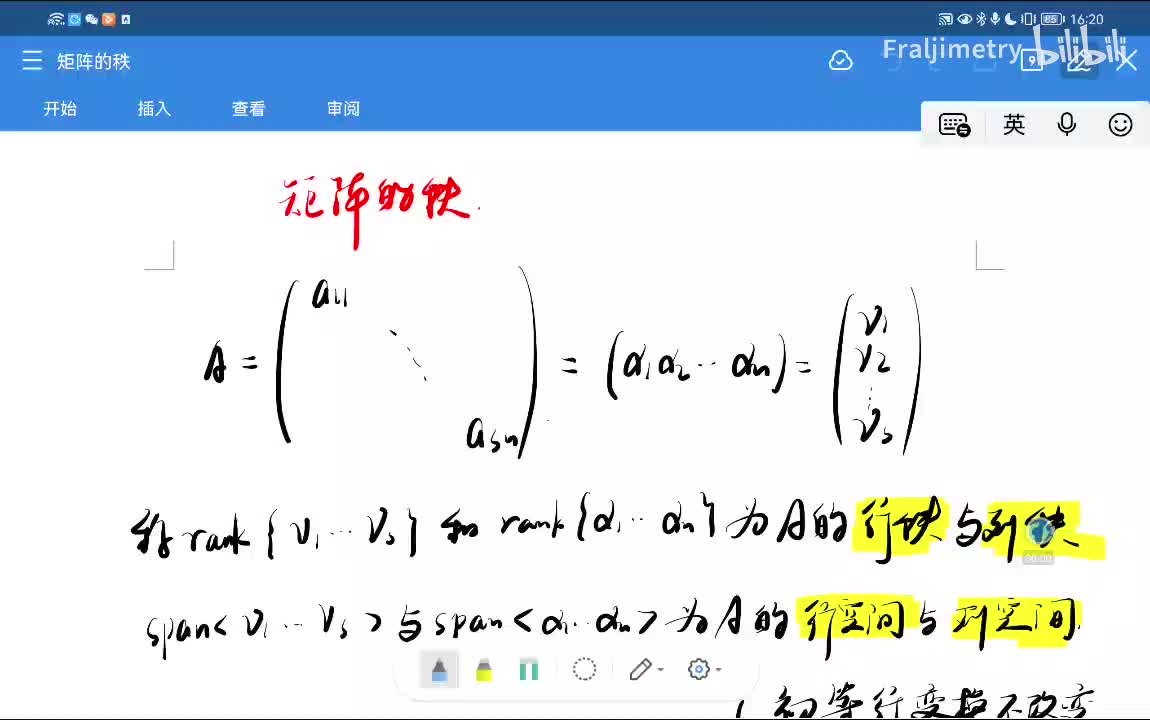 85 16:20
矩阵的秩
Fraljimetry bilibili
开始 插入 查看 审阅
英
矩阵的秩.
A = (a11 ⋱ asn) = (α1 α2 ⋯ αn) = (v1 v2 ⋮ vs)
称 rank{v1 ⋯ vs} 和 rank{α1 ⋯ αn} 为 A 的 行秩 与 列秩
00:00
span<v1 ⋯ vs> 与 span<α1 ⋯ αn> 为 A 的 行空间 与 列空间
初等行变换不改变